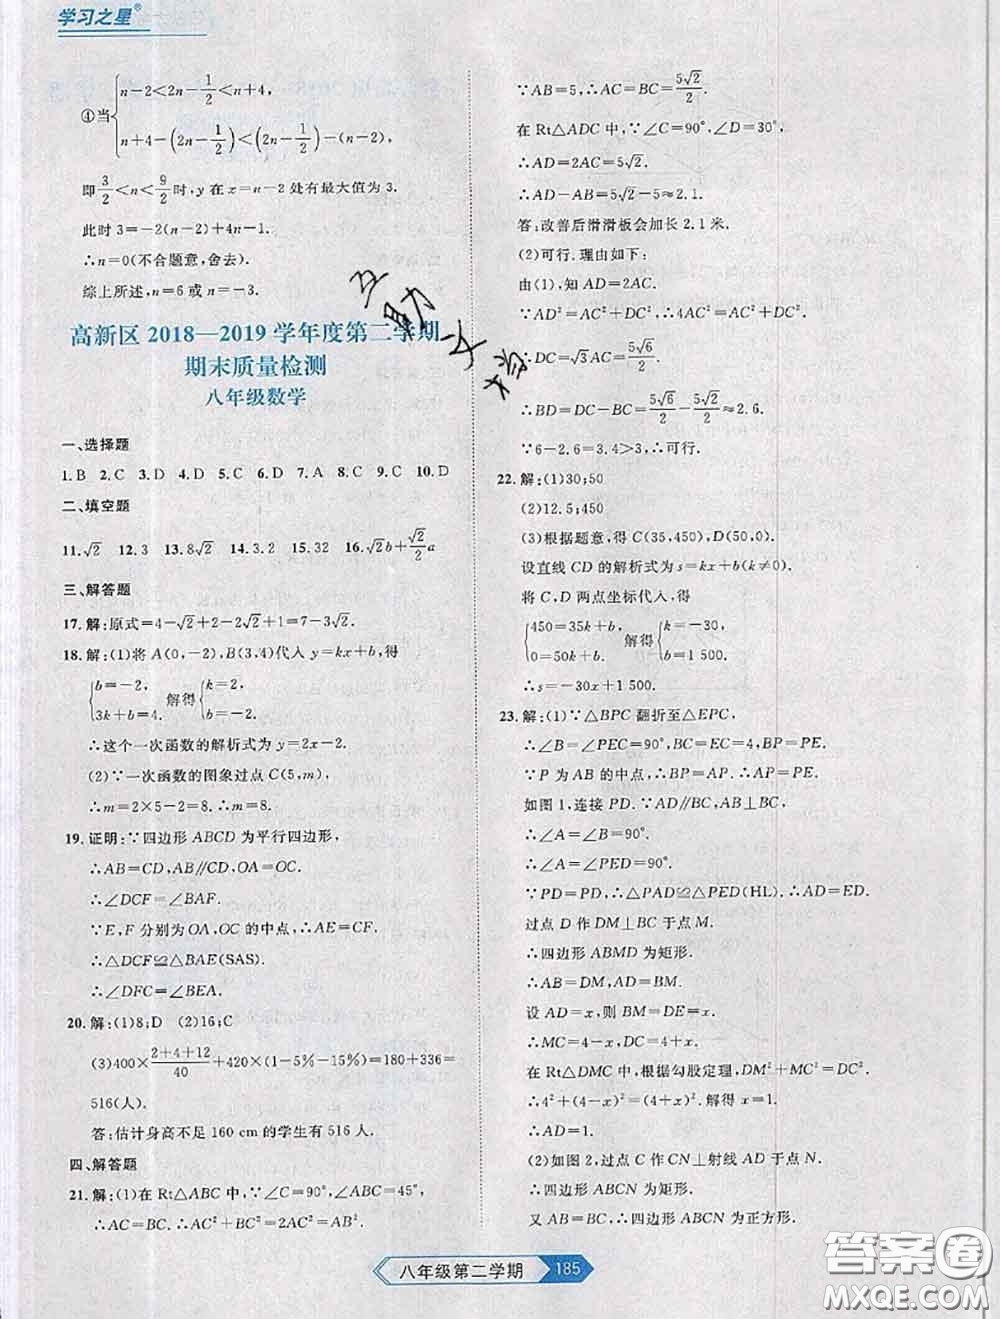 学习之星®
①当{n-2<2n-1/2<n+4,
n+4-(2n-1/2)<(2n-1/2)-(n-2),
即3/2<n<9/2时,y在x=n-2处有最大值为3.
此时3=-2(n-2)+4n-1.
∴n=0(不合题意,舍去).
综上所述,n=6或n=-3.
高新区2018—2019学年度第二学期
期末质量检测
八年级数学
一、选择题
1.B 2.C 3.D 4.D 5.C 6.D 7.A 8.C 9.C 10.D
二、填空题
11.√2 12.3 13.8√2 14.3.2 15.32 16.√2b+√2/2a
三、解答题
17.解:原式=4-√2+2-2√2+1=7-3√2.
18.解:(1)将A(0,-2),B(3,4)代入y=kx+b,得
{b=-2,
3k+b=4. 解得{k=2,
b=-2.
∴这个一次函数的解析式为y=2x-2.
(2)∵一次函数的图象过点C(5,m),
∴m=2×5-2=8.∴m=8.
19.证明:∵四边形ABCD为平行四边形,
∴AB=CD,AB∥CD,OA=OC.
∴∠DCF=∠BAE.
∵E,F分别为OA,OC的中点,∴AE=CF.
∴△DCF≌△BAE(SAS).
∴∠DFC=∠BEA.
20.解:(1)8;D (2)16;C
(3)400×(2+4+12)/40+420×(1-5%-15%)=180+336=
516(人).
答:估计身高不足160 cm的学生有516人.
四、解答题
21.解:(1)在Rt△ABC中,∵∠C=90°,∠ABC=45°,
∴AC=BC.∴AC²+BC²=2AC²=AB².
∵AB=5,∴AC=BC=5√2/2.
在Rt△ADC中,∵∠C=90°,∠D=30°,
∴AD=2AC=5√2.
∴AD-AB=5√2-5≈2.1.
答:改善后滑滑板会加长2.1米.
(2)可行.理由如下:
由(1),知AD=2AC.
∵AD²=AC²+DC²,∴4AC²=AC²+DC².
∴DC=√3AC=5√6/2.
∴BD=DC-BC=5√6/2-5√2/2≈2.6.
∵6-2.6=3.4>3,∴可行.
22.解:(1)30;50
(2)12.5;450
(3)根据题意,得C(35,450),D(50,0).
设直线CD的解析式为s=kx+b(k≠0).
将C,D两点坐标代入,得
{450=35k+b,
0=50k+b. 解得{k=-30,
b=1 500.
∴s=-30x+1 500.
23.解:(1)∵△BPC翻折至△EPC,
∴∠B=∠PEC=90°,BC=EC=4,BP=PE.
∵P为AB的中点,∴BP=AP.∴AP=PE.
如图1,连接PD.∵AD∥BC,AB⊥BC,
∴∠A=∠B=90°.
∴∠A=∠PED=90°.
∵PD=PD,∴△PAD≌△PED(HL).∴AD=ED.
过点D作DM⊥BC于点M.
∴四边形ABMD为矩形.
∴AB=DM,AD=BM.
设AD=x,则BM=DE=x.
∴MC=4-x,DC=4+x.
在Rt△DMC中,根据勾股定理,DM²+MC²=DC².
∴4²+(4-x)²=(4+x)².解得x=1.
∴AD=1.
(2)如图2,过点C作CN⊥射线AD于点N.
∴四边形ABCN为矩形.
又AB=BC,∴四边形ABCN为正方形.
互助文档
八年级第二学期 185
答案圈
MXQE.COM